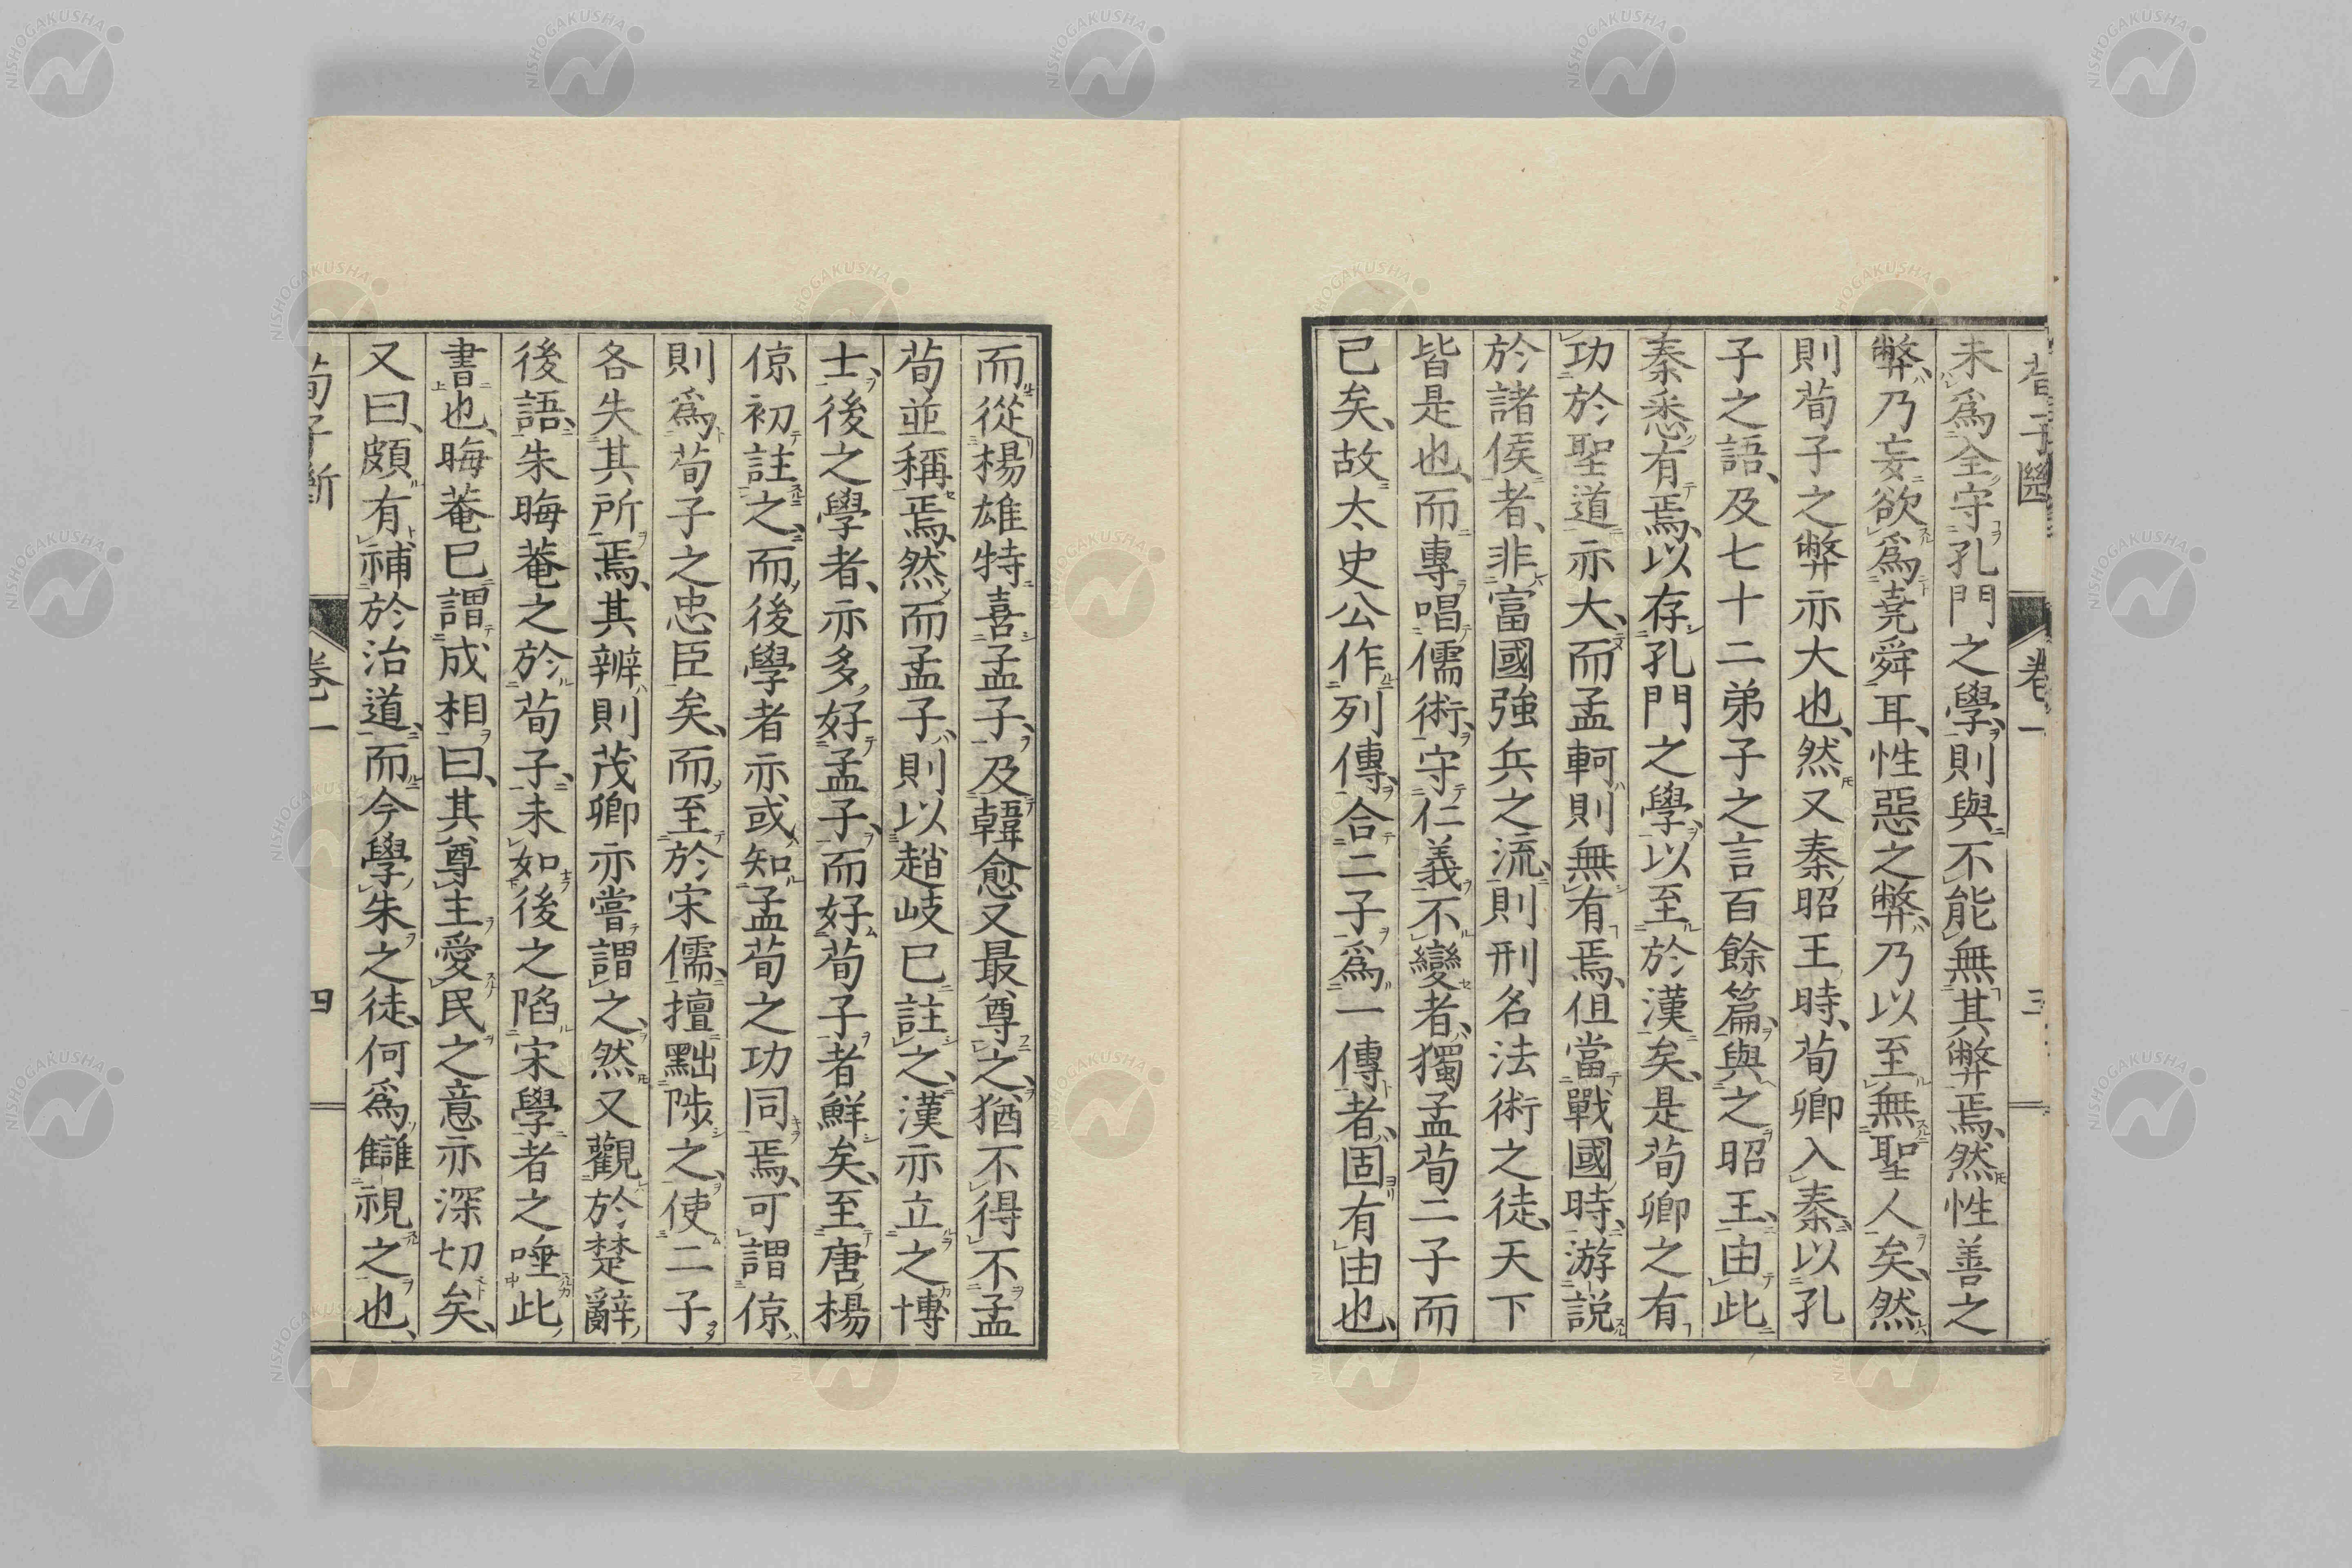 荀子斷 卷一 三
未爲全守孔門之學、則與不能無其弊焉、然性善之
弊、乃妄欲爲堯舜耳、性惡之弊、乃以至無聖人矣、然
則荀子之弊亦大也、然又秦昭王時、荀卿入秦、以孔
子之語、及七十二弟子之言百餘篇、與之昭王、由此
秦悉有焉、以存孔門之學、以至於漢矣、是荀卿之有
功於聖道亦大、而孟軻則無有焉、但當戰國時、游説
於諸侯者、非富國強兵之流、則刑名法術之徒、天下
皆是也、而專唱儒術、守仁義不變者、獨孟荀二子而
已矣、故太史公作列傳、合二子爲一傳者、固有由也、
而從楊雄特喜孟子、及韓愈又最尊之、猶不得不孟
荀並稱焉、然而孟子、則以趙岐已註之、漢亦立之博
士、後之學者、亦多好孟子、而好荀子者鮮矣、至唐楊
倞初註之、而後學者亦或知孟荀之功同焉、可謂倞
則爲荀子之忠臣矣、而至於宋儒、擅黜陟之、使二子
各失其所焉、其辨則茂卿亦嘗謂之、然又觀於楚辭
後語、朱晦菴之於荀子、未如後之陷宋學者之唾此
書也、晦菴已謂成相曰、其尊主愛民之意亦深切矣、
又曰、頗有補於治道、而今學朱之徒、何爲讎視之也、
荀子斷 卷一 四
NISHOGAKUSHA